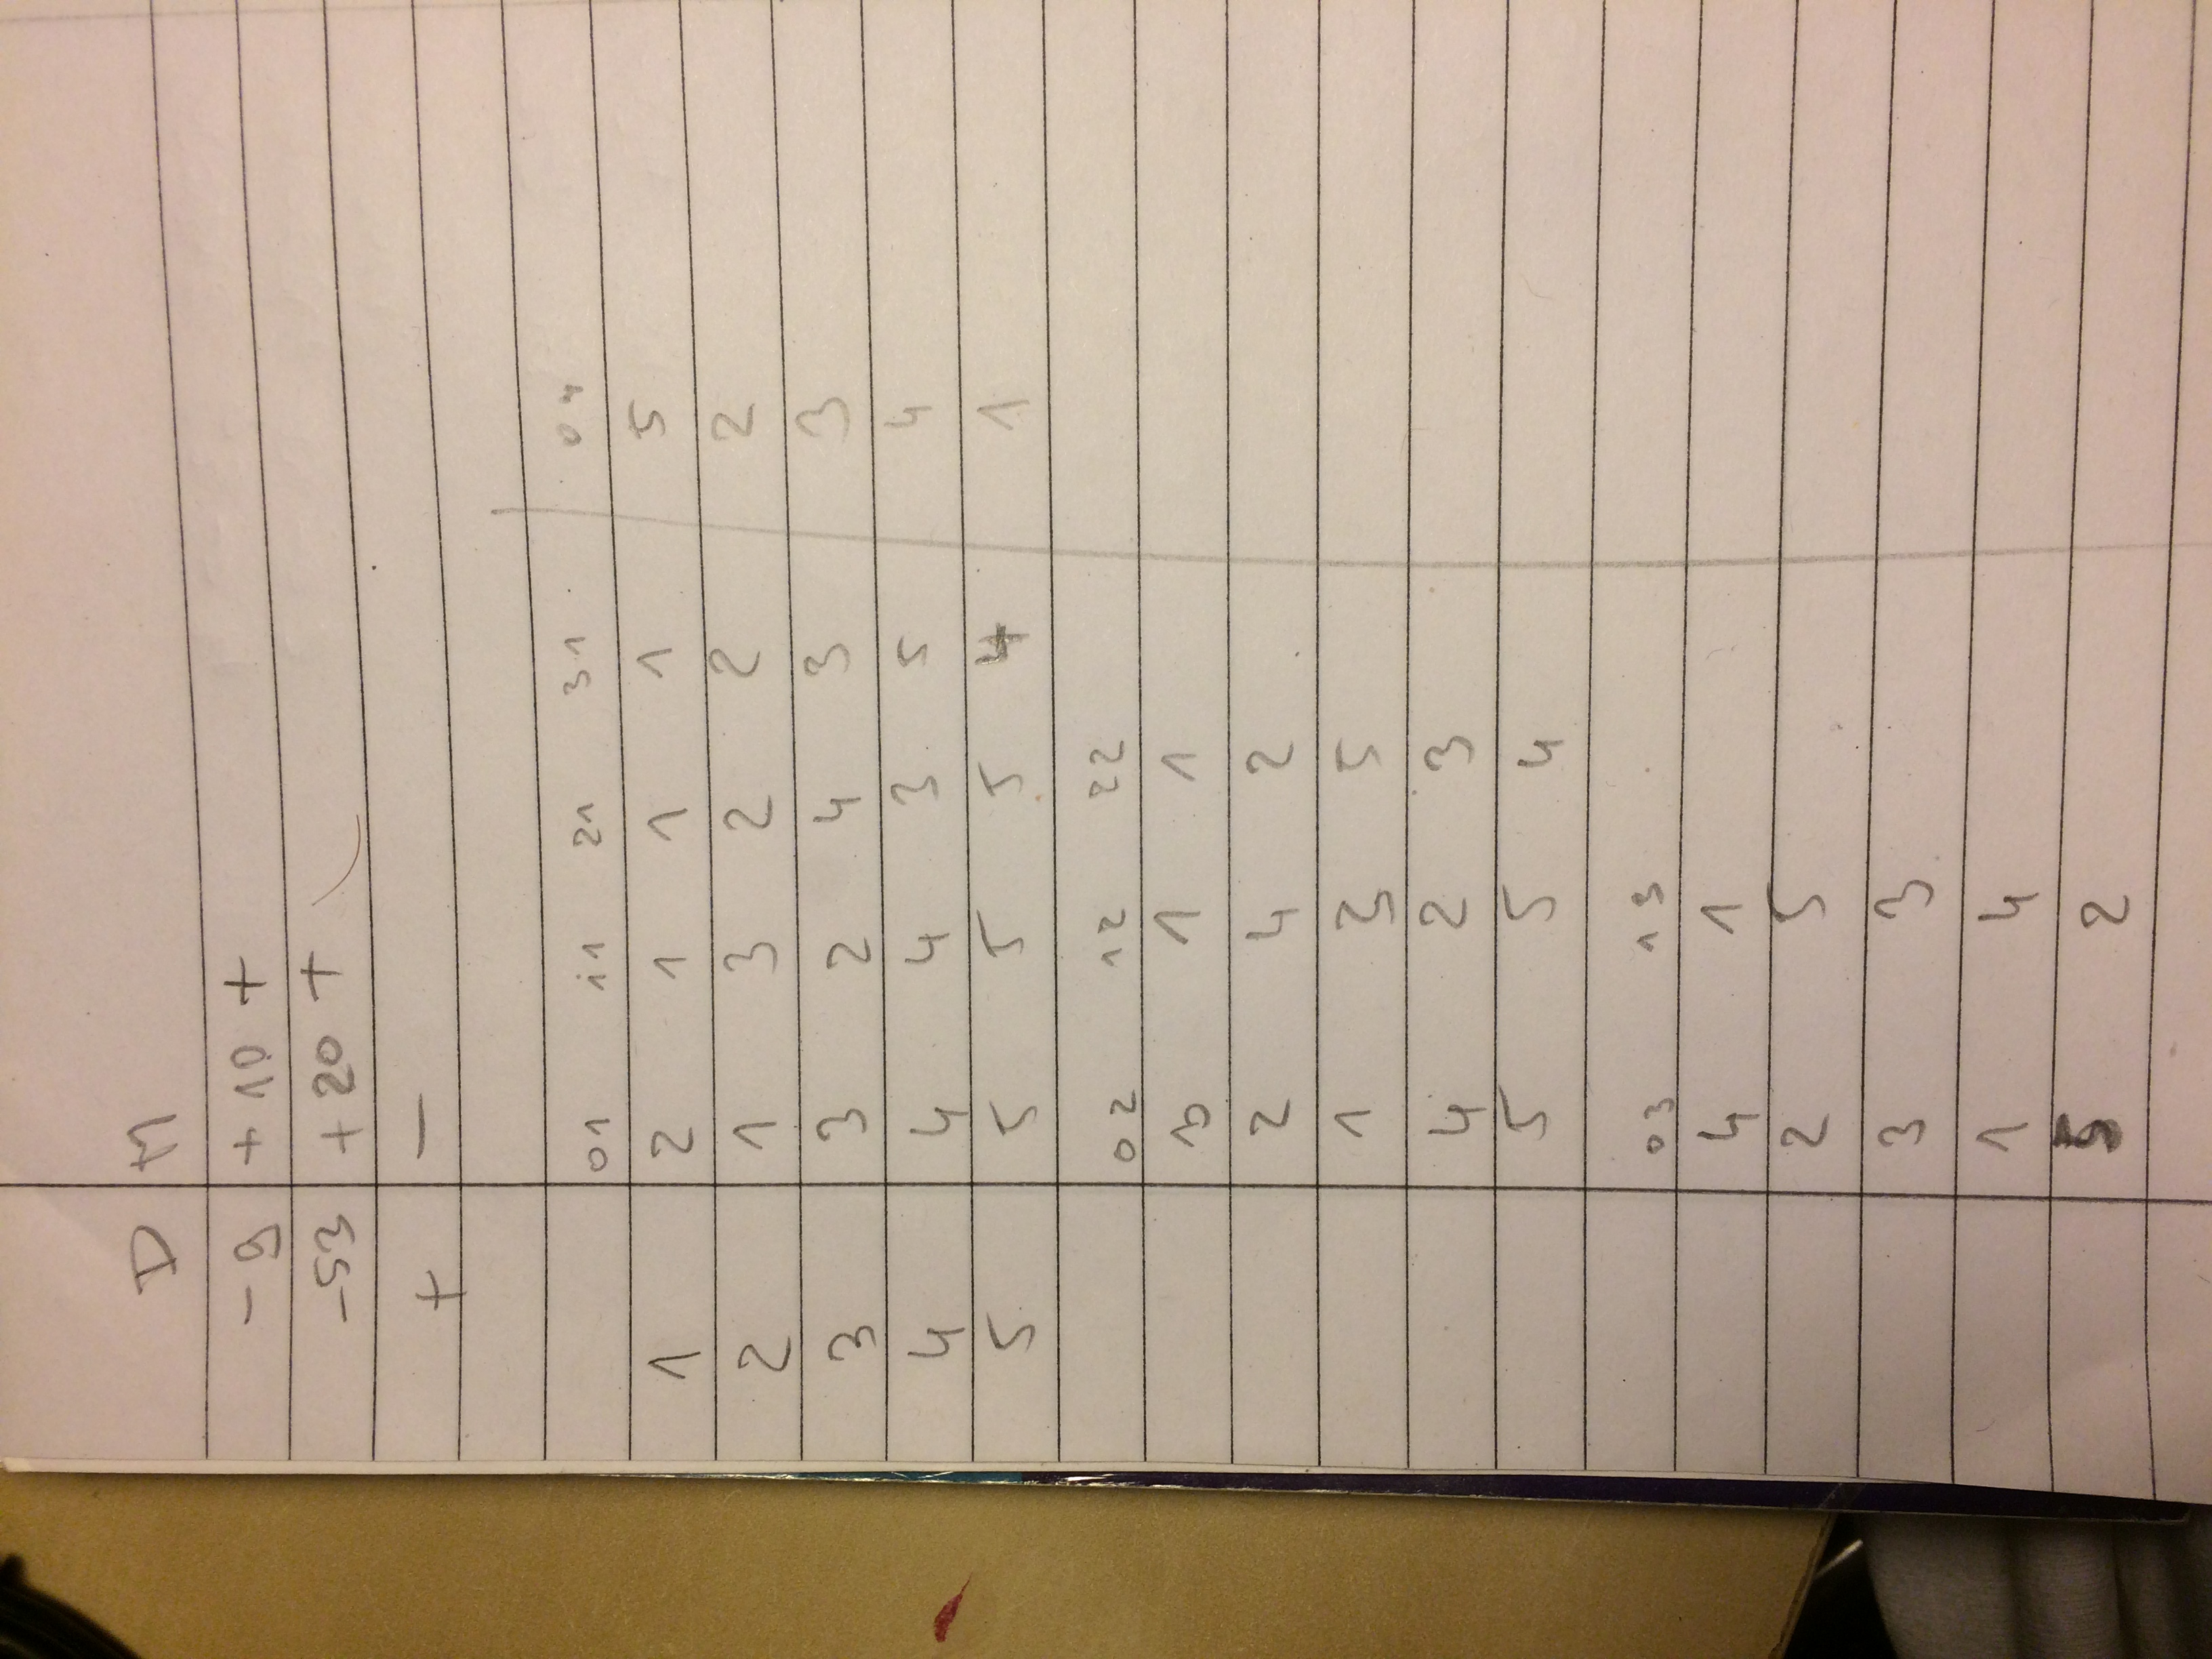 D M
-9 +10 +
-53 +20 +
+ -
01 11 21 31 04
1 2 1 1 1 5
2 1 3 2 2 2
3 3 2 4 3 3
4 4 4 3 5 4
5 5 5 5 4 1
02 12 22
3 1 1
2 4 2
1 3 5
4 2 3
5 5 4
03 13
4 1
2 5
3 3
1 4
5 2